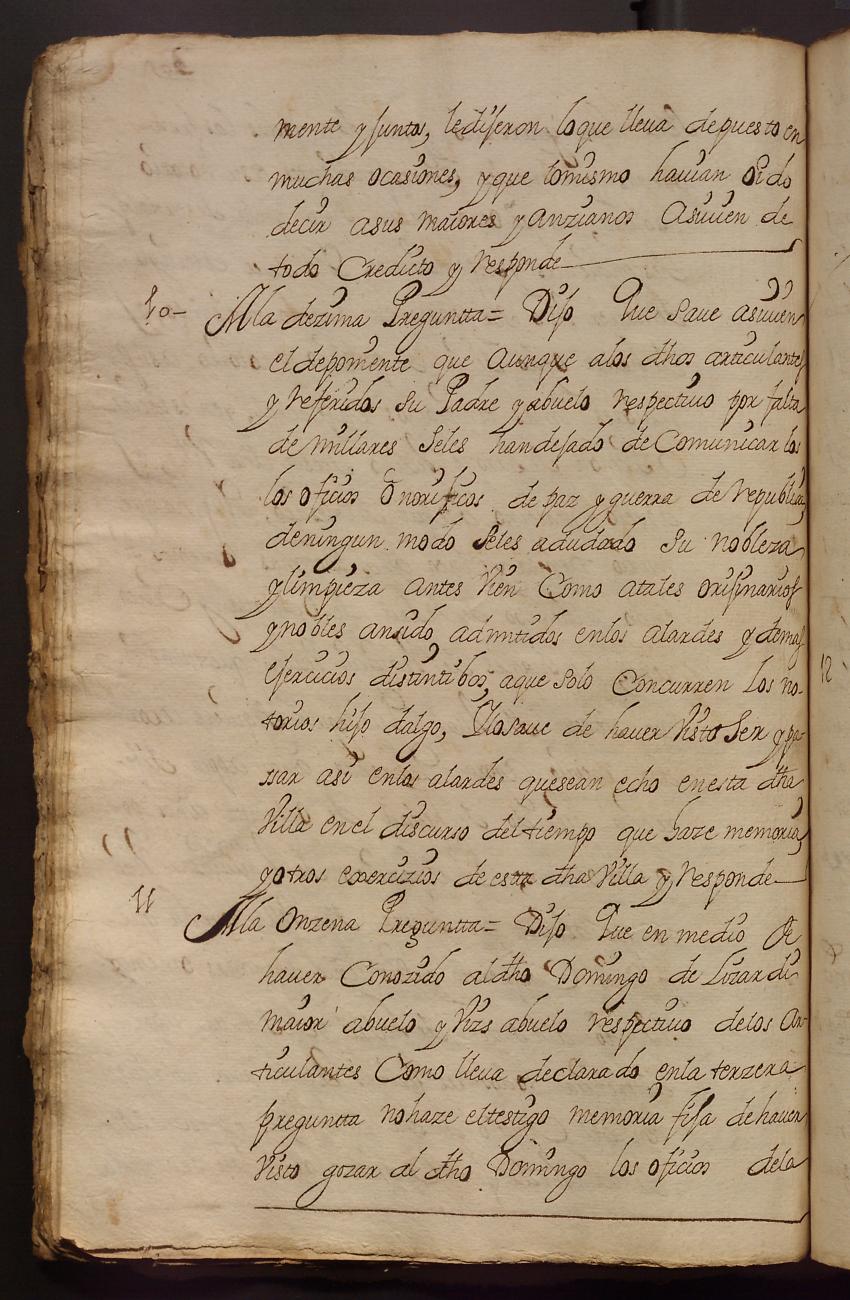 mente y juntos, ledijeron loque lleva depuesto en
muchas ocasiones, yque lomismo havian oido
decir asus maiores yanzianos Asuuien de
todo Credicto y responde
10- Alla dezima Preguntta= Dijo Que saue asuuien
eldeponente que aunque alos dhos articulantes
y referidos su Padre yabuelo respectivo por falta
de millares seles handejado deComunicar los
los oficios onorificos de paz yguerra de republica
deningun modo seles adudado su nobleza
ylimpieza antes vien Como atales orijinarios
ynobles ansido admitidos enlos alardes y demas
ejercicios distintibos, aque solo Concurren los no-
torios hijo dalgo, Ylosaue de hauer visto ser ypa-
sar asi enlos alardes quesean echo enesta dha
Villa enel discurso deltiempo que haze memoria,
yotros exercizios de esta dha Villa y responde
11 Alla Onzena Preguntta= Dijo Que en medio de
hauer Conozido aldho Domingo de Lozardi
maior abuelo y vizabuelo respectivo delos Ar-
ticulantes Como lleva declarado enla terzera
preguntta nohaze eltestigo memoria fija dehauer
visto gozar al dho Domingo los oficios dela
12